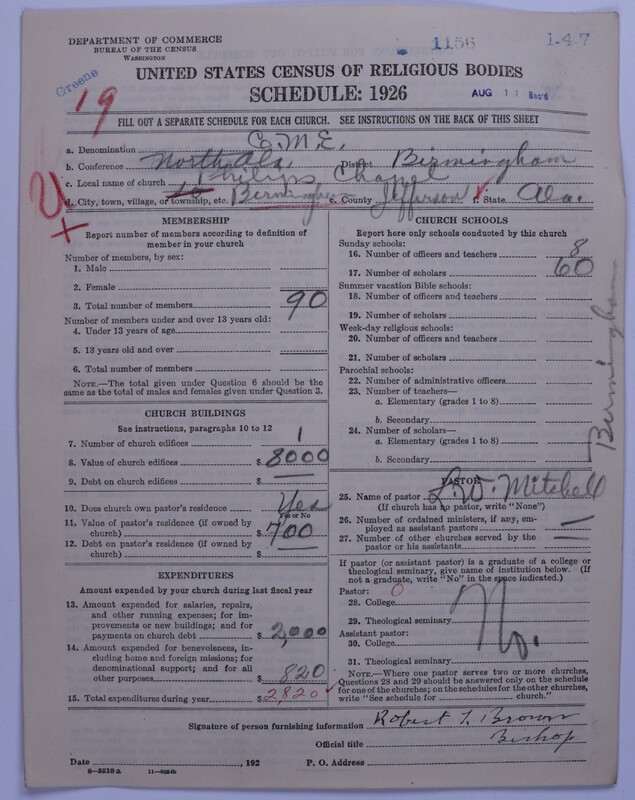 DEPARTMENT OF COMMERCE
BUREAU OF THE CENSUS
WASHINGTON
1156
1-4-7
Greene
19
UNITED STATES CENSUS OF RELIGIOUS BODIES
SCHEDULE: 1926
AUG 11 Rec'd
FILL OUT A SEPARATE SCHEDULE FOR EACH CHURCH. SEE INSTRUCTIONS ON THE BACK OF THIS SHEET
a. Denomination C.M.E.
b. Conference North Ala. District Birmingham
c. Local name of church Philips Chapel
d. City, town, village, or township, etc. Birmingham e. County Jefferson f. State Ala.
MEMBERSHIP
Report number of members according to definition of member in your church
Number of members, by sex:
1. Male
2. Female
3. Total number of members 90
Number of members under and over 13 years old:
4. Under 13 years of age
5. 13 years old and over
6. Total number of members
NOTE.—The total given under Question 6 should be
same as the total of males and females given under Question 3.
CHURCH BUILDINGS
See instructions, paragraphs 10 to 12
7. Number of church edifices 1
8. Value of church edifices $ 8000
9. Debt on church edifices $ —
10. Does church own pastor's residence? Yes
Yes or No
11. Value of pastor's residence (if owned by
church) $ 700
12. Debt on pastor's residence (if owned by
church) $ —
EXPENDITURES
Amount expended by your church during last fiscal year
13. Amount expended for salaries, repairs,
and other running expenses; for im-
provements or new buildings; and for
payments on church debt $ 2,000
14. Amount expended for benevolences, in-
cluding home and foreign missions; for
denominational support; and for all
other purposes $ 820
15. Total expenditures during year $ 2,820
CHURCH SCHOOLS
Report here only schools conducted by this church
Sunday schools:
16. Number of officers and teachers 8
17. Number of scholars 60
Summer vacation Bible schools:
18. Number of officers and teachers
19. Number of scholars
Week-day religious schools:
20. Number of officers and teachers
21. Number of scholars
Parochial schools:
22. Number of administrative officers
23. Number of teachers—
a. Elementary (grades 1 to 8)
b. Secondary
24. Number of scholars—
a. Elementary (grades 1 to 8)
b. Secondary
Birmingham
PASTOR
25. Name of pastor L. W. Mitchell
(If church has no pastor, write "None")
26. Number of ordained ministers, if any, em-
ployed as assistant pastors —
27. Number of other churches served by the
pastor or his assistants —
If pastor (or assistant pastor) is a graduate of a college or
theological seminary, give name of institution below. (If
not a graduate, write "No" in the space indicated.)
Pastor: 0
28. College
29. Theological seminary No.
Assistant pastor:
30. College
31. Theological seminary
NOTE.—Where one pastor serves two or more churches,
Questions 28 and 29 should be answered only on the schedule
for one of the churches; on the schedules for the other churches,
write "See schedule for church."
Signature of person furnishing information Robert T. Brown
Official title Bishop
Date , 192 P. O. Address